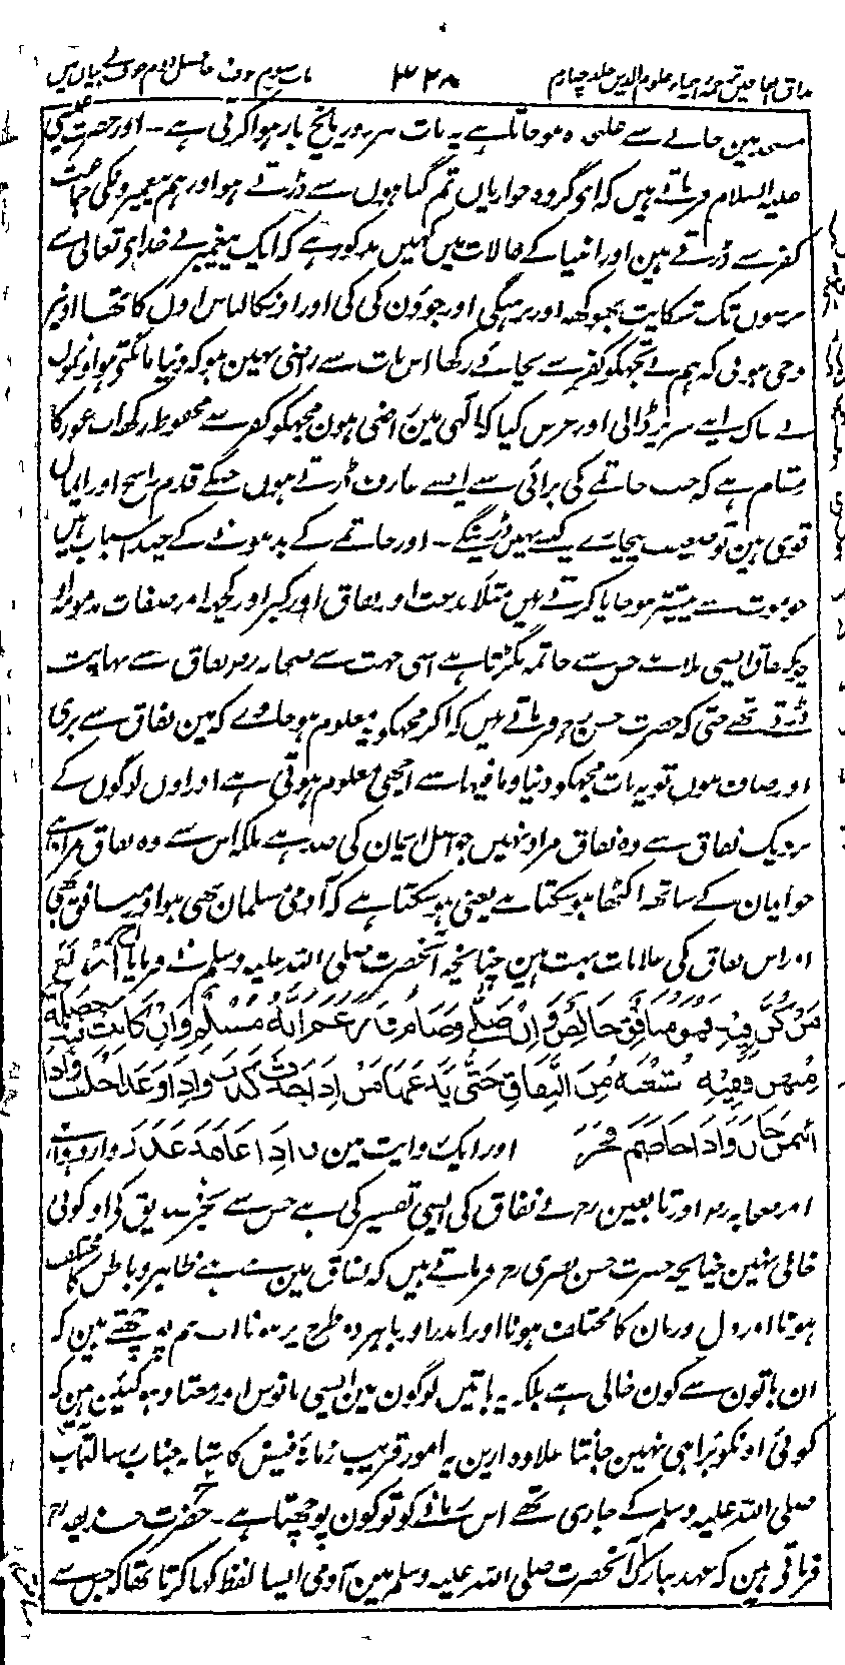 مذاق العارفین ترجمۂ احیاء علوم الدین جلد چہارم ۳۲۸ باب سوم خوف فصل دوم خوف کے بیان میں
مسجد مین جانے سے علیحدہ ہو جاتا ہے یہ بات ہر روز پانچ بار ہوا کرتی ہے۔ اور حضرت عیسی
علیہ السلام فرماتے ہیں کہ ای گروہ حواریاں تم گناہوں سے ڈرتے ہو اور ہم پیغمبرونکی جماعت
کفر سے ڈرتے ہین اور انبیا کے حالات میں کہیں مذکور ہے کہ ایک پیغمبر نے خدای تعالی سے
برسوں تک شکایت بھوکھہ اور برہنگی اور جوؤن کی کی اور اونکا لباس اون کا تھا اونپر
وحی ہوئی کہ ہم نے تجھکو کفر سے بچائے رکھا اس بات سے راضی نہین ہو کہ دنیا مانگتے ہو اونہوں
نے خاک اپنے سر پر ڈالی اور عرض کیا کہ الٰہی مین راضی ہون مجھکو کفر سے محفوظ رکھ اب غور کا
مقام ہے کہ جب خاتمے کی برائی سے ایسے عارف ڈرتے ہوں جنکے قدم راسخ اور ایمان
قوی ہین تو ضعیف بیچارے کیسے نہیں ڈرینگے۔ اور خاتمے کے بد ہونے کے چند اسباب ہیں
جو موت سے پیشتر ہو جایا کرتے ہیں مثلا بدعت اور نفاق اور کبر اور کچھ اور صفات مذمومہ
چونکہ نفاق ایسی بلا ہے جس سے خاتمہ بگڑتا ہے اسی جہت سے صحابہ رض نفاق سے نہایت
ڈرتے تھے حتی کہ حضرت حسن رح فرماتے ہیں کہ اگر مجھکو یہ معلوم ہو جاوے کہ مین نفاق سے بری
اور صاف ہوں تو یہ بات مجھکو دنیا و مافیہا سے اچھی معلوم ہوتی ہے اور اون لوگوں کے
نزدیک نفاق سے وہ نفاق مراد نہیں جو اصل ایمان کی ضد ہے بلکہ اس سے وہ نفاق مراد ہے
جو ایمان کے ساتھ اکٹھا ہو سکتا ہے یعنی ہو سکتا ہے کہ آدمی مسلمان بھی ہو اور منافق بھی
اور اس نفاق کی علامات بہت ہین چنانچہ آنحضرت صلی اللہ علیہ وسلم نے فرمایا أَرْبَعٌ
مَنْ كُنَّ فِيْهِ فَهُوَ مُنَافِقٌ خَالِصٌ وَإِنْ صَلَّى وَصَامَ وَزَعَمَ أَنَّهُ مُسْلِمٌ وَإِنْ كَانَتْ فِيْهِ خَصْلَةٌ
مِنْهُنَّ فَفِيْهِ شُعْبَةٌ مِنَ النِّفَاقِ حَتَّى يَدَعَهَا مَنْ إِذَا حَدَّثَ كَذَبَ وَإِذَا وَعَدَ أَخْلَفَ وَإِذَا
ائْتُمِنَ خَانَ وَإِذَا خَاصَمَ فَجَرَ اور ایک روایت مین وَإِذَا عَاهَدَ غَدَرَ وارد ہوا ہے
اور صحابہ رض اور تابعین رح نے نفاق کی ایسی تفسیر کی ہے جس سے بجز صدیق کے اور کوئی
خالی نہین چنانچہ حضرت حسن بصری رح فرماتے ہیں کہ نفاق مین سے ہے ظاہر و باطن کا مختلف
ہونا اور دل و زبان کا مختلف ہونا اور اندر اور باہر دو طرح پر ہونا اب ہم پوچھتے ہین کہ
ان باتون سے کون خالی ہے بلکہ یہ باتیں لوگون مین ایسی مانوس اور معتاد ہو گئین ہین کہ
کوئی اونکو برا ہی نہین جانتا علاوہ ازین یہ امور قریب زمانۂ فیض کاشانہ جناب رسالتمآب
صلی اللہ علیہ وسلم کے جاری تھے اس زمانے کو تو کون پوچھتا ہے۔ حضرت حذیفہ رض
فرماتے ہین کہ عہد مبارک آنحضرت صلی اللہ علیہ وسلم مین آدمی ایسا لفظ کہا کرتا تھا کہ جس سے